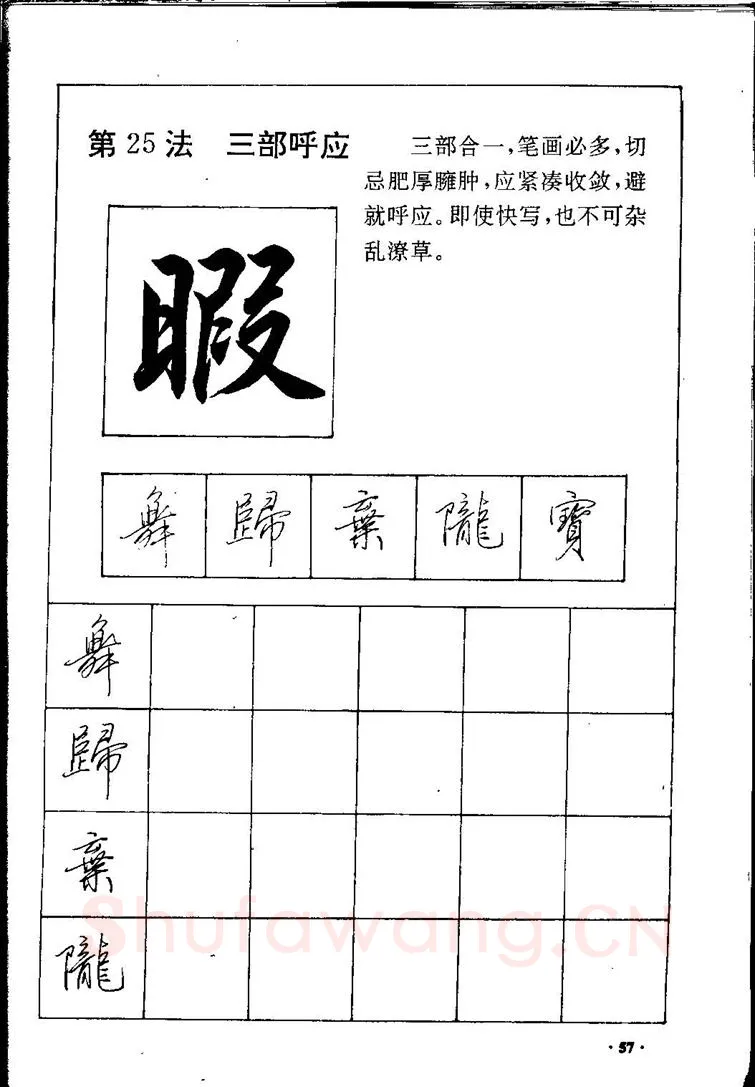 第25法 三部呼应
三部合一，笔画必多，切
忌肥厚臃肿，应紧凑收敛，避
就呼应。即使快写，也不可杂
乱潦草。
暇
舞 歸 棄 隴 寶
舞
歸
棄
隴
Shufawang.CN
·57·